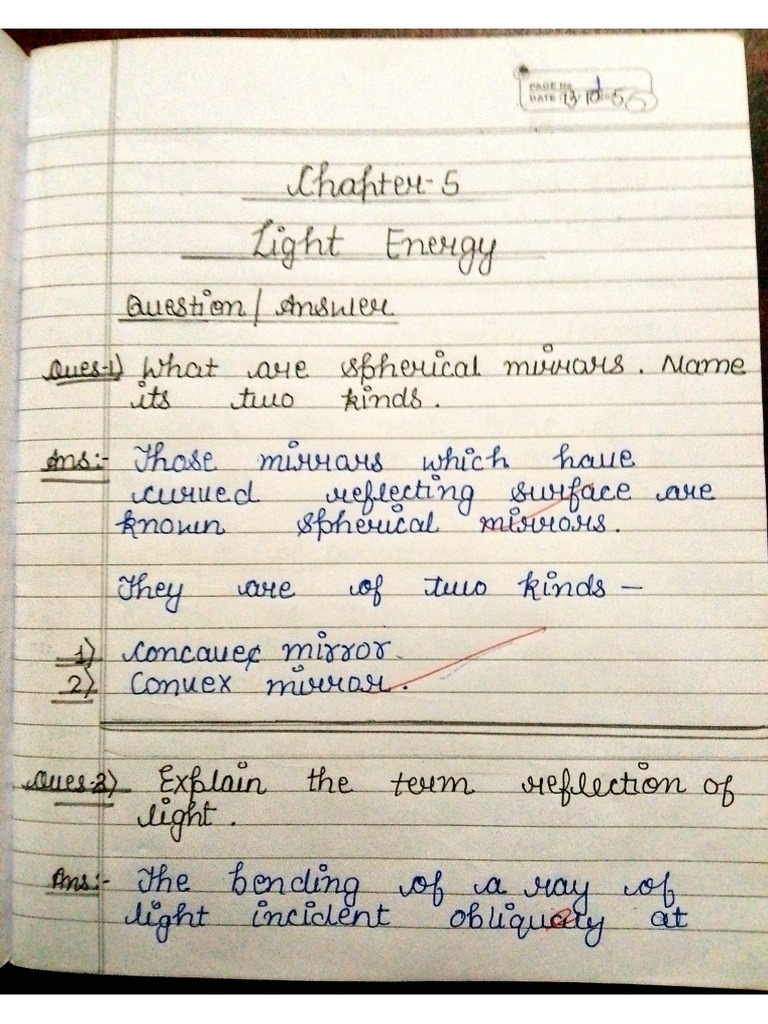 PAGE No.
DATE
Chapter-5
Light Energy
Question / Answer
Ques-1) What are spherical mirrors. Name
its two kinds.
Ans:- Those mirrors which have
curved reflecting surface are
known spherical mirrors.
They are of two kinds —
1) Concave mirror.
2) Convex mirror.
Ques-2) Explain the term reflection of
light.
Ans:- The bending of a ray of
light incident obliquely at